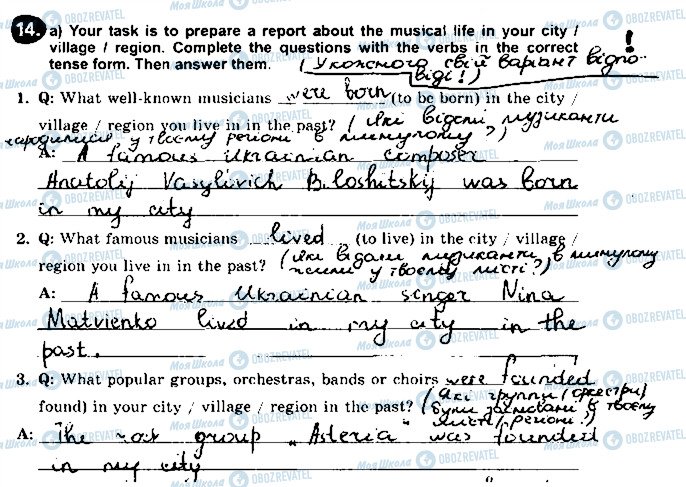 14. a) Your task is to prepare a report about the musical life in your city /
village / region. Complete the questions with the verbs in the correct
tense form. Then answer them. (У кожного свій варіант відпо-
віді!)
1. Q: What well-known musicians were born (to be born) in the city /
village / region you live in in the past? (Які відомі музиканти
народилися у твоєму регіоні в минулому?)
A: A famous Ukrainian composer
Anatolij Vasylivich Biloshitskij was born
in my city
2. Q: What famous musicians lived (to live) in the city / village /
region you live in in the past? (Які відомі музиканти в минулому
жили у твоєму місті?)
A: A famous Ukrainian singer Nina
Matvienko lived in my city in the
past.
3. Q: What popular groups, orchestras, bands or choirs were founded
found) in your city / village / region in the past? (Які групи (оркестри)
були засновані в твоєму
місті/регіоні?)
A: The group „Asteria" was founded
in my city